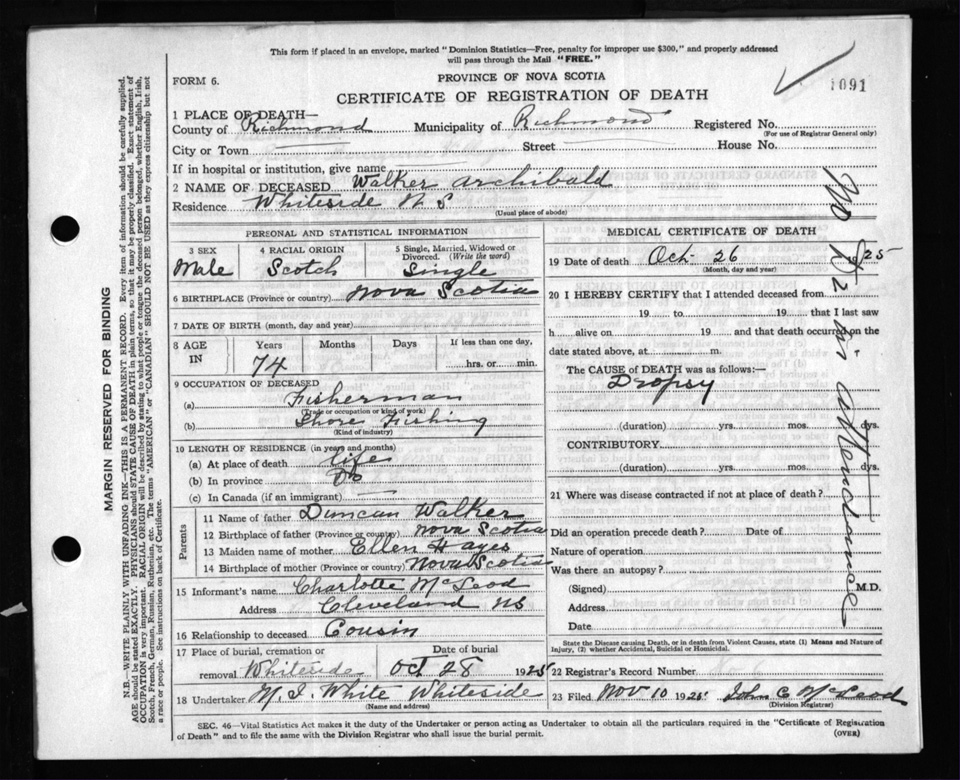 This form if placed in an envelope, marked "Dominion Statistics—Free, penalty for improper use $300," and properly addressed
will pass through the Mail "FREE."
FORM 6.
PROVINCE OF NOVA SCOTIA
1091
CERTIFICATE OF REGISTRATION OF DEATH
1 PLACE OF DEATH—
County of Richmond Municipality of Richmond Registered No.
(For use of Registrar General only)
City or Town Street House No.
If in hospital or institution, give name
2 NAME OF DECEASED Walker Archibald
Residence Whiteside N S
(Usual place of abode)
PERSONAL AND STATISTICAL INFORMATION
3 SEX 4 RACIAL ORIGIN 5 Single, Married, Widowed or Divorced. (Write the word)
Male Scotch Single
6 BIRTHPLACE (Province or country) Nova Scotia
7 DATE OF BIRTH (month, day and year)
8 AGE IN Years Months Days If less than one day,
74 hrs. or min.
9 OCCUPATION OF DECEASED
(a) Fisherman
(Trade or occupation or kind of work)
(b) Shore Fishing
(Kind of industry)
10 LENGTH OF RESIDENCE (in years and months)
(a) At place of death life
(b) In province Do
(c) In Canada (if an immigrant)
Parents
11 Name of father Duncan Walker
12 Birthplace of father (Province or country) Nova Scotia
13 Maiden name of mother Ellen Hayes
14 Birthplace of mother (Province or country) Nova Scotia
15 Informant's name Charlotte McLeod
Address Cleveland NS
16 Relationship to deceased Cousin
17 Place of burial, cremation or Date of burial
removal Whiteside Oct 28 1925
18 Undertaker M. J. White Whiteside
(Name and address)
MEDICAL CERTIFICATE OF DEATH
19 Date of death Oct 26 1925
(Month, day and year)
20 I HEREBY CERTIFY that I attended deceased from
19 to 19 that I last saw
h alive on 19 and that death occurred on the
date stated above, at m.
The CAUSE of DEATH was as follows:—
Dropsy
(duration) yrs. mos. dys.
CONTRIBUTORY
(duration) yrs. mos. dys.
21 Where was disease contracted if not at place of death?
Did an operation precede death? Date of
Nature of operation
Was there an autopsy?
(Signed) M.D.
Address
Date
State the Disease causing Death, or in death from Violent Causes, state (1) Means and Nature of
Injury, (2) whether Accidental, Suicidal or Homicidal.
22 Registrar's Record Number
23 Filed Nov 10 1925 John C McLeod
(Division Registrar)
No Dr in attendance
SEC. 46—Vital Statistics Act makes it the duty of the Undertaker or person acting as Undertaker to obtain all the particulars required in the "Certificate of Registration
of Death" and to file the same with the Division Registrar who shall issue the burial permit.
(OVER)
MARGIN RESERVED FOR BINDING
N.B.—WRITE PLAINLY WITH UNFADING INK—THIS IS A PERMANENT RECORD. Every item of information should be carefully supplied.
AGE should be stated EXACTLY. PHYSICIANS should STATE CAUSE OF DEATH in plain terms, so that it may be properly classified. Exact statement of
OCCUPATION is very important. RACIAL ORIGIN will be described by stating to what people or tongue the deceased person belonged, whether English, Irish,
Scotch, French, German, Russian, Ruthenian, etc. The terms "AMERICAN" or "CANADIAN" SHOULD NOT BE USED as they express citizenship but not
a race or people. See instructions on back of Certificate.